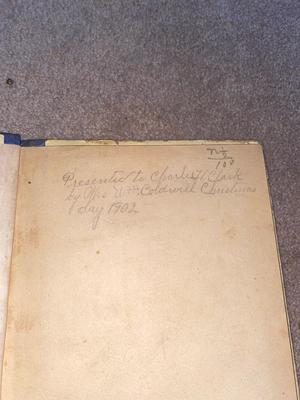 100
Presented to Charles H Clark
by Mrs Wm Coldwell Christmas
day 1902